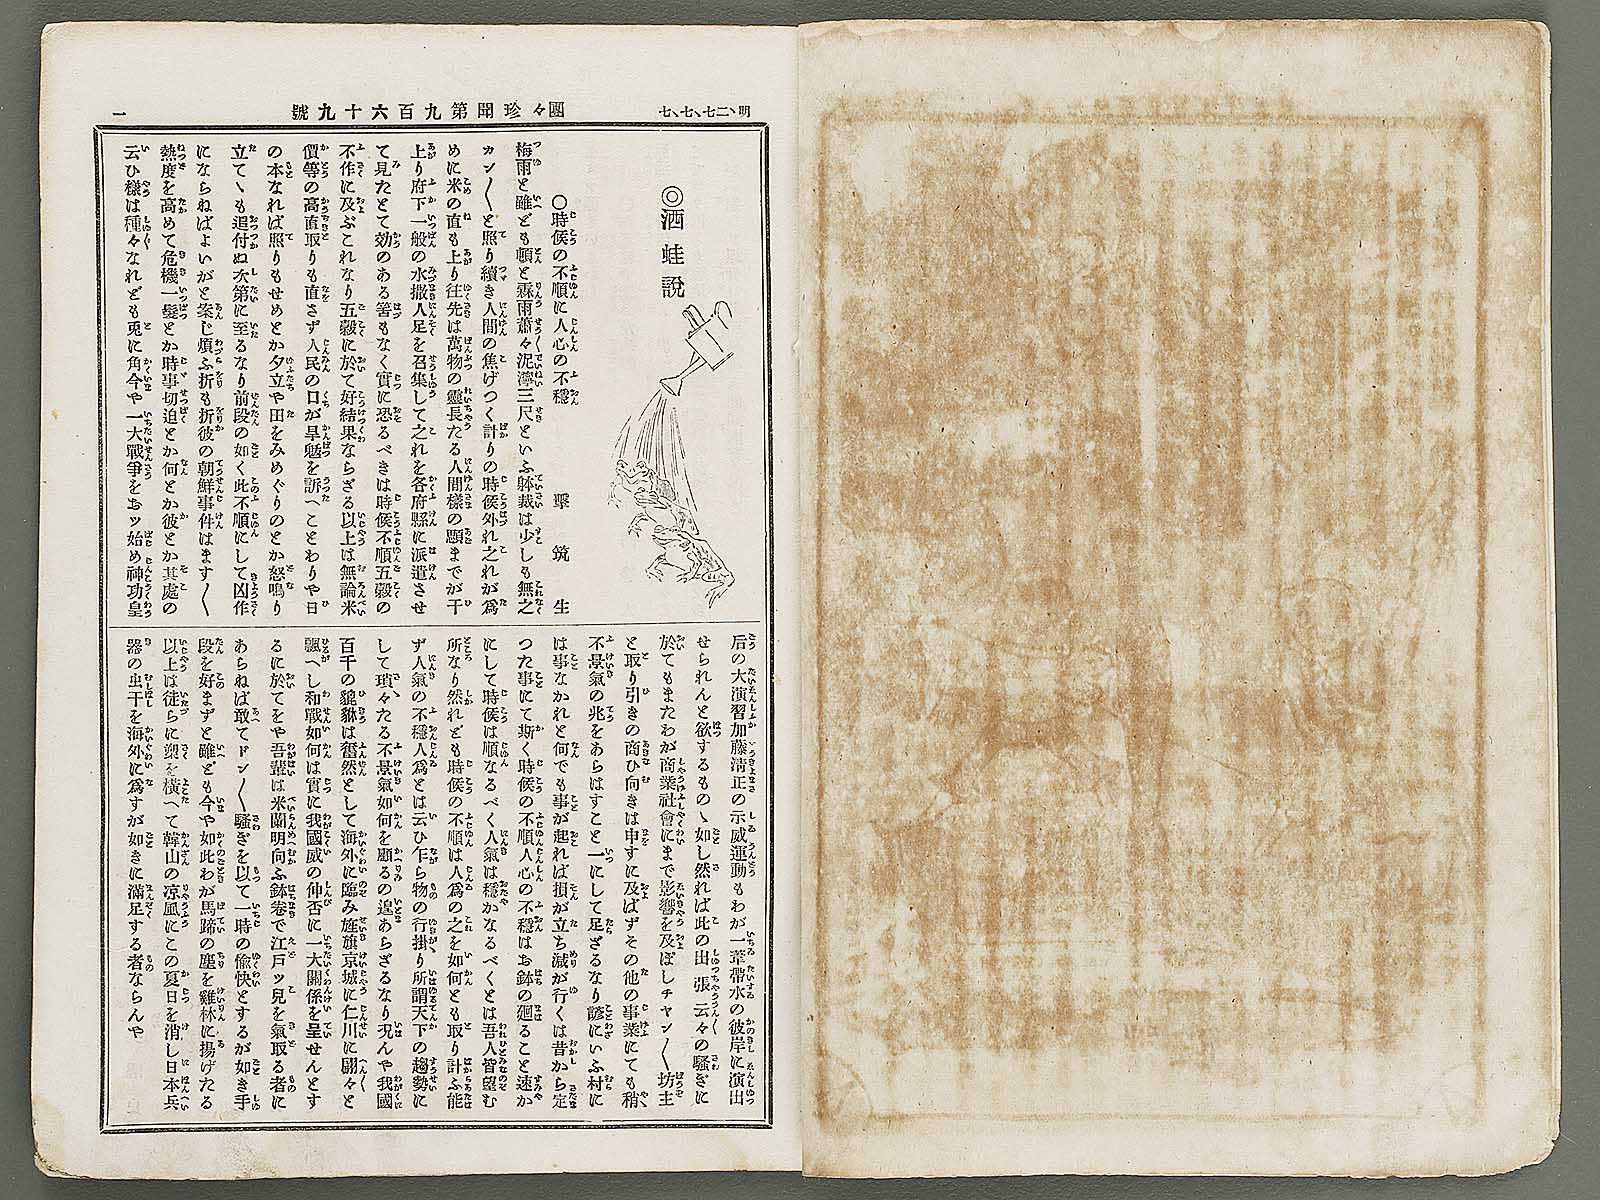 明、二七、七、七
團々珍聞第九百六十九號
一
◎洒蛙說
○時候の不順に人心の不穩
擊筑生
梅雨と雖ども頓と霖雨蕭々泥濘三尺といふ躰裁は少しも無之
カン〱と照り續き人間の焦げつく計りの時候外れ之れが爲
めに米の直も上り往先は萬物の靈長たる人間樣の顋までが干
上り府下一般の水撒人足を召集して之れを各府縣に派遣させ
て見たとて効のある筈もなく實に恐るべきは時候不順五穀の
不作に及ぶこれなり五穀に於て好結果ならざる以上は無論米
價等の高直取りも直さず人民の口が旱魃を訴へことわりや日
の本なれば照りもせめとか夕立や田をみめぐりのとか怒鳴り
立てゝも追付ぬ次第に至るなり前段の如く此不順にして凶作
にならねばよいがと案じ煩ふ折も折彼の朝鮮事件はます〱
熱度を高めて危機一髮とか時事切迫とか何とか彼とか其處の
云ひ樣は種々なれども兎に角今や一大戰爭をおッ始め神功皇
后の大演習加藤淸正の示威運動もわが一葦帶水の彼岸に演出
せられんと欲するものゝ如し然れば此の出張云々の騷ぎに
於てもまたわが商業社會にまで影響を及ぼしチャン〱坊主
と取り引きの商ひ向きは申すに及ばずその他の事業にても稍
不景氣の兆をあらはすこと一にして足ざるなり諺にいふ村に
は事なかれと何でも事が起れば損が立ち減が行くは昔から定
つた事にて斯く時候の不順人心の不穩はお鉢の廻ること速か
にして時候は順なるべく人氣は穩かなるべくとは吾人皆望む
所なり然れども時候の不順は人爲の之を如何とも取り計ふ能
ず人氣の不穩人爲とは云ひ乍ら物の行掛り所謂天下の趨勢に
して瑣々たる不景氣如何を顧るの遑あらざるなり况んや我國
百千の貔貅は奮然として海外に臨み旌旗京城に仁川に翩々と
飄へし和戰如何は實に我國威の伸否に一大關係を呈せんとす
るに於てをや吾輩は米蘭明向ふ鉢卷で江戸ッ兒を氣取る者に
あらねば敢てドン〱騷ぎを以て一時の愉快とするが如き手
段を好まずと雖ども今や如此わが馬蹄の塵を雞林に揚げたる
以上は徒らに槊を橫へて韓山の凉風にこの夏日を消し日本兵
器の虫干を海外に爲すが如きに滿足する者ならんや